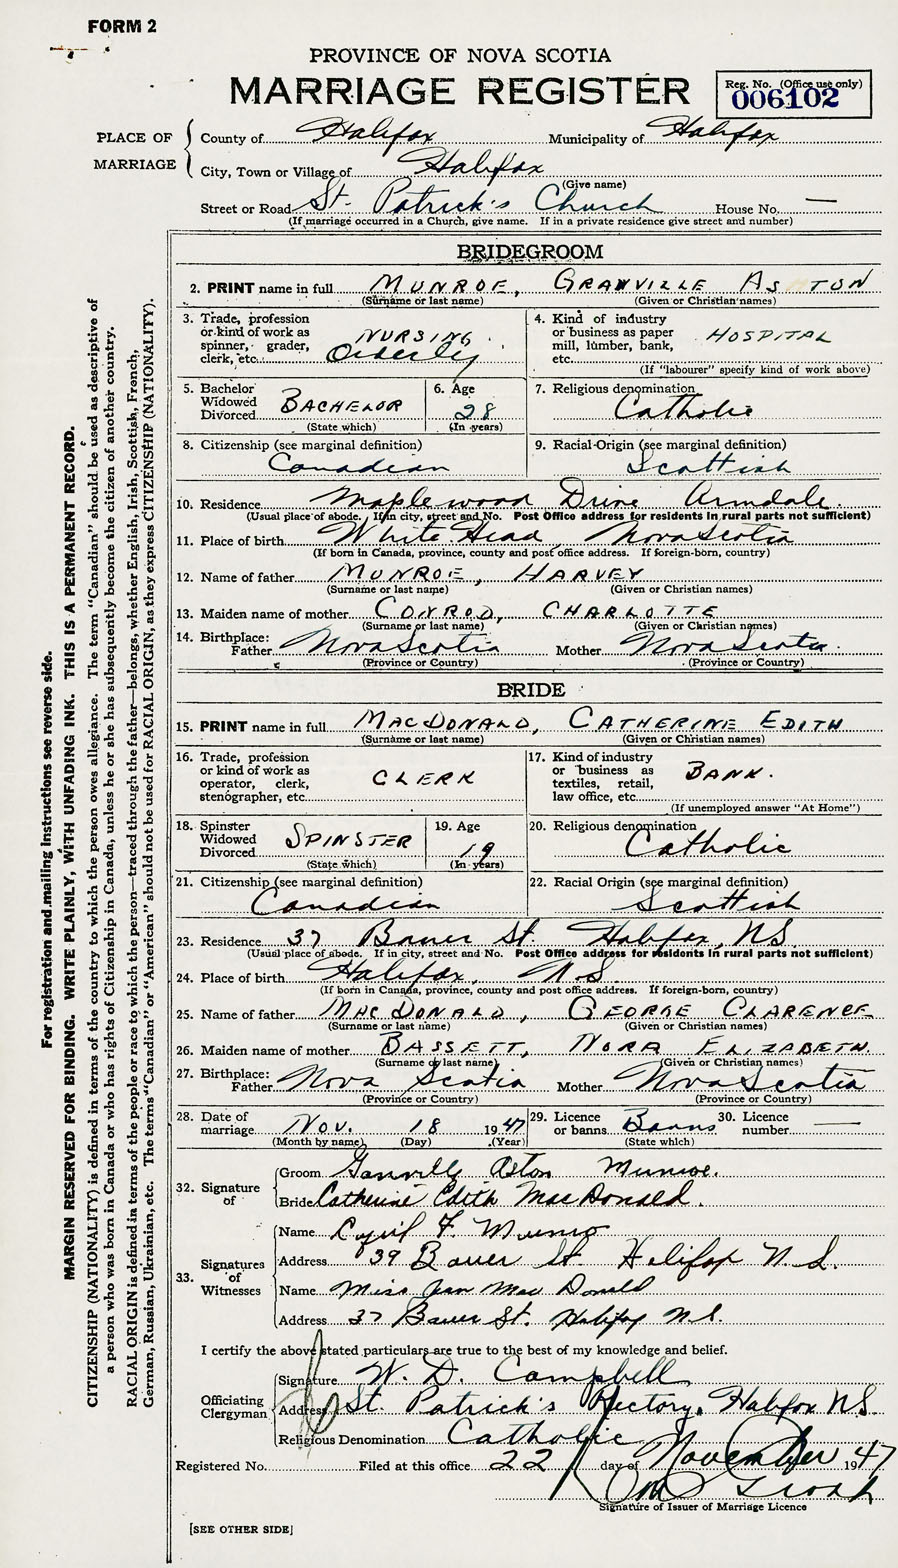 FORM 2
PROVINCE OF NOVA SCOTIA
MARRIAGE REGISTER
Reg. No. (Office use only)
006102
PLACE OF MARRIAGE
County of Halifax Municipality of Halifax
City, Town or Village of Halifax
(Give name)
Street or Road St. Patrick's Church House No. —
(If marriage occurred in a Church, give name. If in a private residence give street and number)
BRIDEGROOM
2. PRINT name in full MUNROE, GRANVILLE AS TON
(Surname or last name) (Given or Christian names)
3. Trade, profession or kind of work as spinner, grader, clerk, etc. NURSING Orderly
4. Kind of industry or business as paper mill, lumber, bank, etc. HOSPITAL
(If "labourer" specify kind of work above)
5. Bachelor Widowed Divorced BACHELOR
(State which)
6. Age 28
(In years)
7. Religious denomination Catholic
8. Citizenship (see marginal definition) Canadian
9. Racial Origin (see marginal definition) Scottish
10. Residence Maplewood Drive Armdale
(Usual place of abode. If in city, street and No. Post Office address for residents in rural parts not sufficient)
11. Place of birth White Head, Nova Scotia
(If born in Canada, province, county and post office address. If foreign-born, country)
12. Name of father MUNROE, HARVEY
(Surname or last name) (Given or Christian names)
13. Maiden name of mother CONROD, CHARLOTTE
(Surname or last name) (Given or Christian names)
14. Birthplace: Father Nova Scotia Mother Nova Scotia
(Province or Country) (Province or Country)
BRIDE
15. PRINT name in full MACDONALD, CATHERINE EDITH
(Surname or last name) (Given or Christian names)
16. Trade, profession or kind of work as operator, clerk, stenographer, etc. CLERK
17. Kind of industry or business as textiles, retail, law office, etc. BANK.
(If unemployed answer "At Home")
18. Spinster Widowed Divorced SPINSTER
(State which)
19. Age 19
(In years)
20. Religious denomination Catholic
21. Citizenship (see marginal definition) Canadian
22. Racial Origin (see marginal definition) Scottish
23. Residence 37 Bauer St. Halifax, N.S.
(Usual place of abode. If in city, street and No. Post Office address for residents in rural parts not sufficient)
24. Place of birth Halifax, N.S.
(If born in Canada, province, county and post office address. If foreign-born, country)
25. Name of father MACDONALD, GEORGE CLARENCE
(Surname or last name) (Given or Christian names)
26. Maiden name of mother BASSETT, NORA ELIZABETH
(Surname or last name) (Given or Christian names)
27. Birthplace: Father Nova Scotia Mother Nova Scotia
(Province or Country) (Province or Country)
28. Date of marriage Nov. 18 1947
(Month by name) (Day) (Year)
29. Licence or banns Banns
(State which)
30. Licence number —
32. Signature of
Groom Granville Aston Munroe.
Bride Catherine Edith MacDonald.
33. Signatures of Witnesses
Name Cyril F. Munro
Address 39 Bauer St. Halifax N.S.
Name Miss Jean MacDonald
Address 37 Bauer St. Halifax N.S.
I certify the above stated particulars are true to the best of my knowledge and belief.
Officiating Clergyman
Signature W. D. Campbell
Address St. Patrick's Rectory, Halifax N.S.
Religious Denomination Catholic
Registered No. Filed at this office 22 day of November 1947
Signature of Issuer of Marriage Licence
[SEE OTHER SIDE]
For registration and mailing instructions see reverse side.
MARGIN RESERVED FOR BINDING. WRITE PLAINLY, WITH UNFADING INK. THIS IS A PERMANENT RECORD.
CITIZENSHIP (NATIONALITY) is defined in terms of the country to which the person owes allegiance. The term "Canadian" should be used as descriptive of
a person who was born in Canada or who has rights of Citizenship in Canada, unless he or she has subsequently become the citizen of another country.
RACIAL ORIGIN is defined in terms of the people or race to which the person—traced through the father—belongs, whether English, Irish, Scottish, French,
German, Russian, Ukrainian, etc. The terms "Canadian" or "American" should not be used for RACIAL ORIGIN, as they express CITIZENSHIP (NATIONALITY).